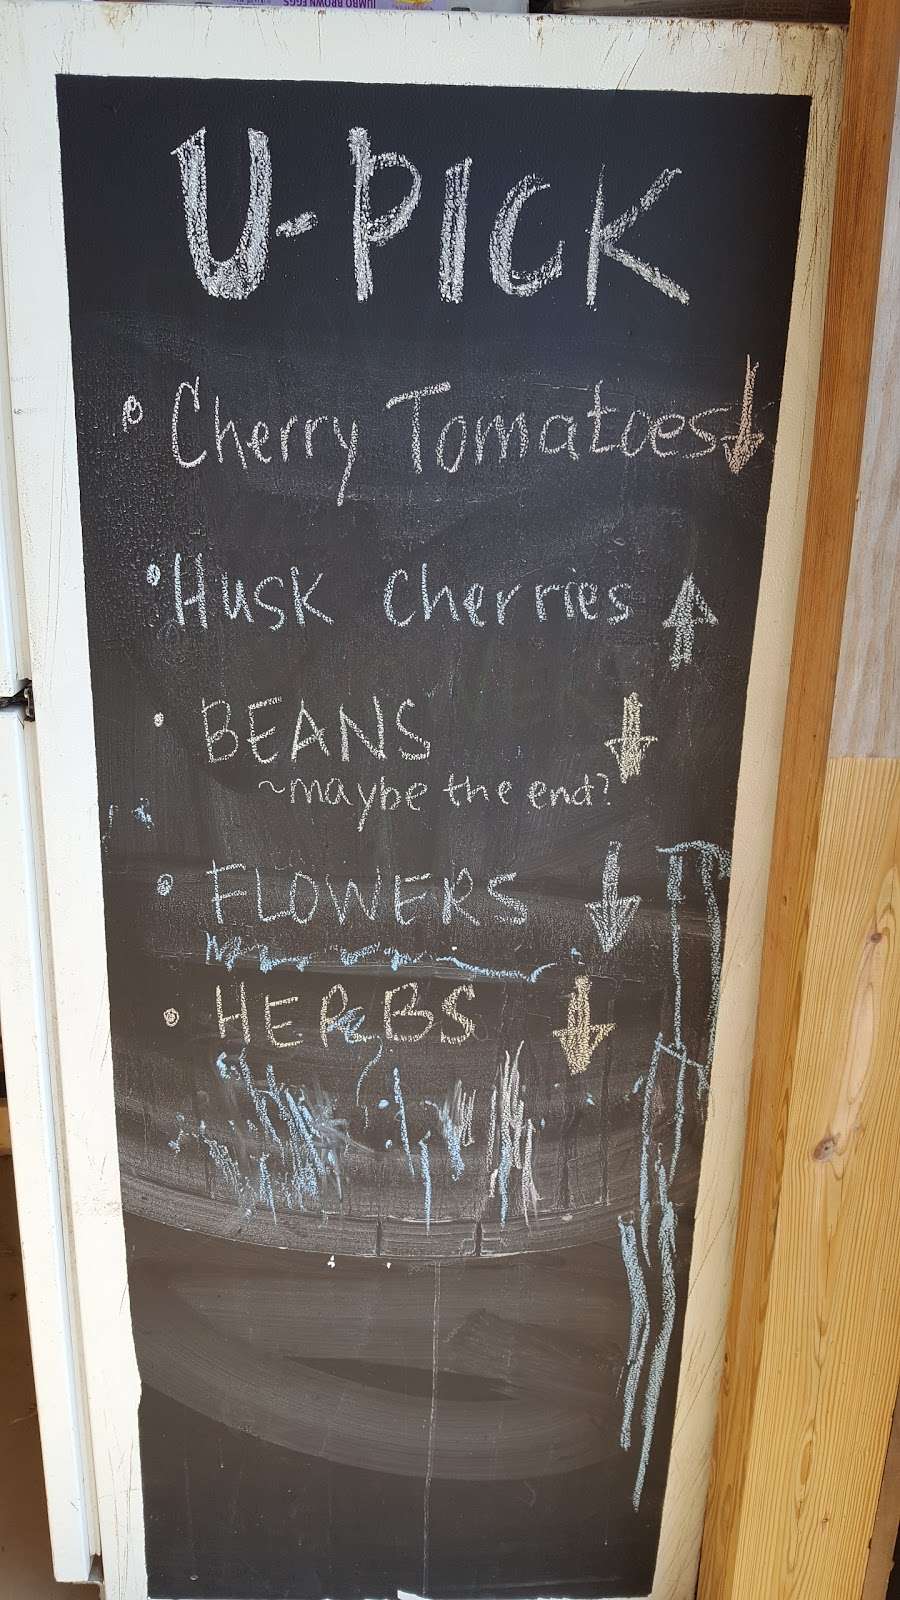 JUMBO BROWN EGGS
U-PICK
• Cherry Tomatoes ↓
• Husk Cherries ↑
• BEANS ↓
~maybe the end?
• FLOWERS ↓
• HERBS ↓